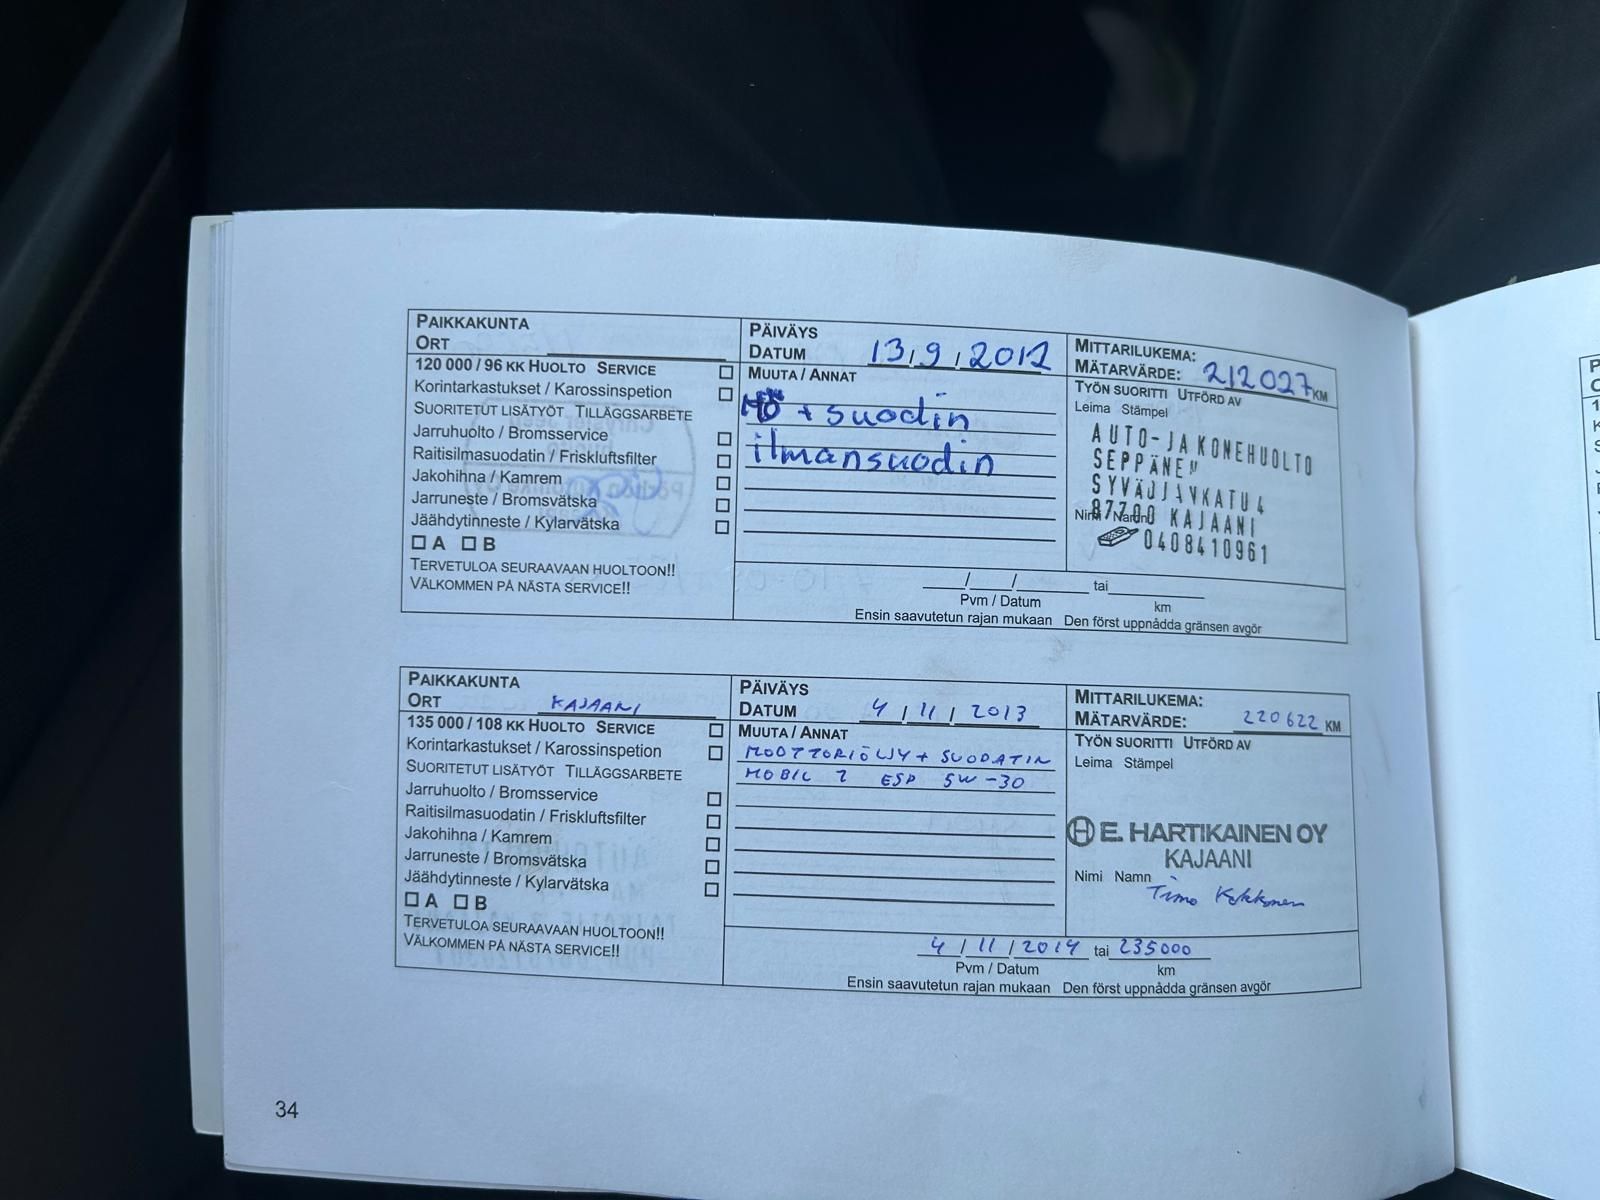 PAIKKAKUNTA
ORT
120 000 / 96 KK HUOLTO SERVICE
Korintarkastukset / Karossinspetion
SUORITETUT LISÄTYÖT TILLÄGGSARBETE
Jarruhuolto / Bromsservice
Raitisilmasuodatin / Friskluftsfilter
Jakohihna / Kamrem
Jarruneste / Bromsvätska
Jäähdytinneste / Kylarvätska
A B
TERVETULOA SEURAAVAAN HUOLTOON!!
VÄLKOMMEN PÅ NÄSTA SERVICE!!
PÄIVÄYS
DATUM 13/9/2012
MUUTA / ANNAT
MÖ + suodin
ilmansuodin
MITTARILUKEMA:
MÄTARVÄRDE: 212027 KM
TYÖN SUORITTI UTFÖRD AV
Leima Stämpel
AUTO-JA KONEHUOLTO
SEPPÄNEN
SYVÄOJANKATU 4
87700 KAJAANI
Nimi / Namn
0408410961
/ / tai
Pvm / Datum km
Ensin saavutetun rajan mukaan Den först uppnådda gränsen avgör
PAIKKAKUNTA
ORT KAJAANI
135 000 / 108 KK HUOLTO SERVICE
Korintarkastukset / Karossinspetion
SUORITETUT LISÄTYÖT TILLÄGGSARBETE
Jarruhuolto / Bromsservice
Raitisilmasuodatin / Friskluftsfilter
Jakohihna / Kamrem
Jarruneste / Bromsvätska
Jäähdytinneste / Kylarvätska
A B
TERVETULOA SEURAAVAAN HUOLTOON!!
VÄLKOMMEN PÅ NÄSTA SERVICE!!
PÄIVÄYS
DATUM 4/11/2013
MUUTA / ANNAT
MOOTTORIÖLJY + SUODATIN
MOBIL 1 ESP 5W-30
MITTARILUKEMA:
MÄTARVÄRDE: 220622 KM
TYÖN SUORITTI UTFÖRD AV
Leima Stämpel
E. HARTIKAINEN OY
KAJAANI
Nimi Namn
Timo Kokkonen
4/11/2014 tai 235000
Pvm / Datum km
Ensin saavutetun rajan mukaan Den först uppnådda gränsen avgör
34